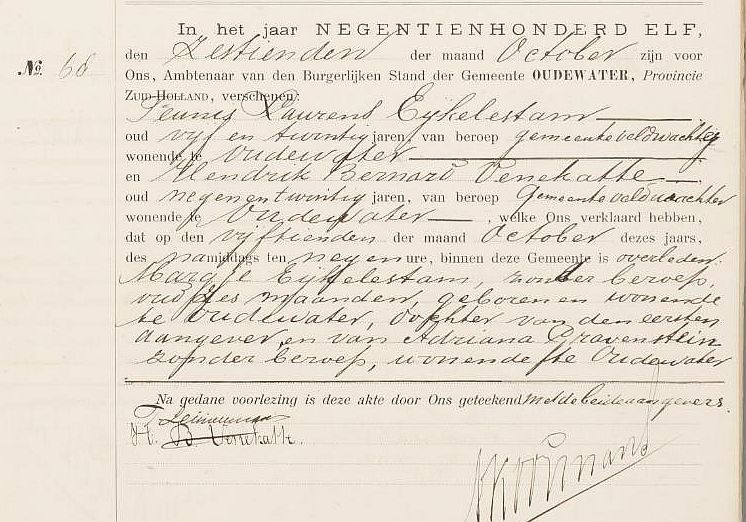 In het jaar NEGENTIENHONDERD ELF,
No. 66 den Zestienden der maand October zijn voor
Ons, Ambtenaar van den Burgerlijken Stand der Gemeente OUDEWATER, Provincie
ZUID-HOLLAND, verschenen:
Teunis Laurens Eijkelestam
oud vijf en twintig jaren, van beroep gemeenteveldwachter
wonende te Oudewater
en Hendrik Bernard Venekatte
oud negen en twintig jaren, van beroep Gemeenteveldwachter
wonende te Oudewater, welke Ons verklaard hebben,
dat op den vijftienden der maand October dezes jaars,
des namiddags ten negen ure, binnen deze Gemeente is overleden:
Margje Eijkelestam, zonder beroep,
oud zes maanden, geboren en wonende
te Oudewater, dochter van den eersten
aangever, en van Adriana Gravenstein
zonder beroep, wonende te Oudewater
Na gedane voorlezing is deze akte door Ons geteekend met de beide aangevers.
H. B. Venekatte.